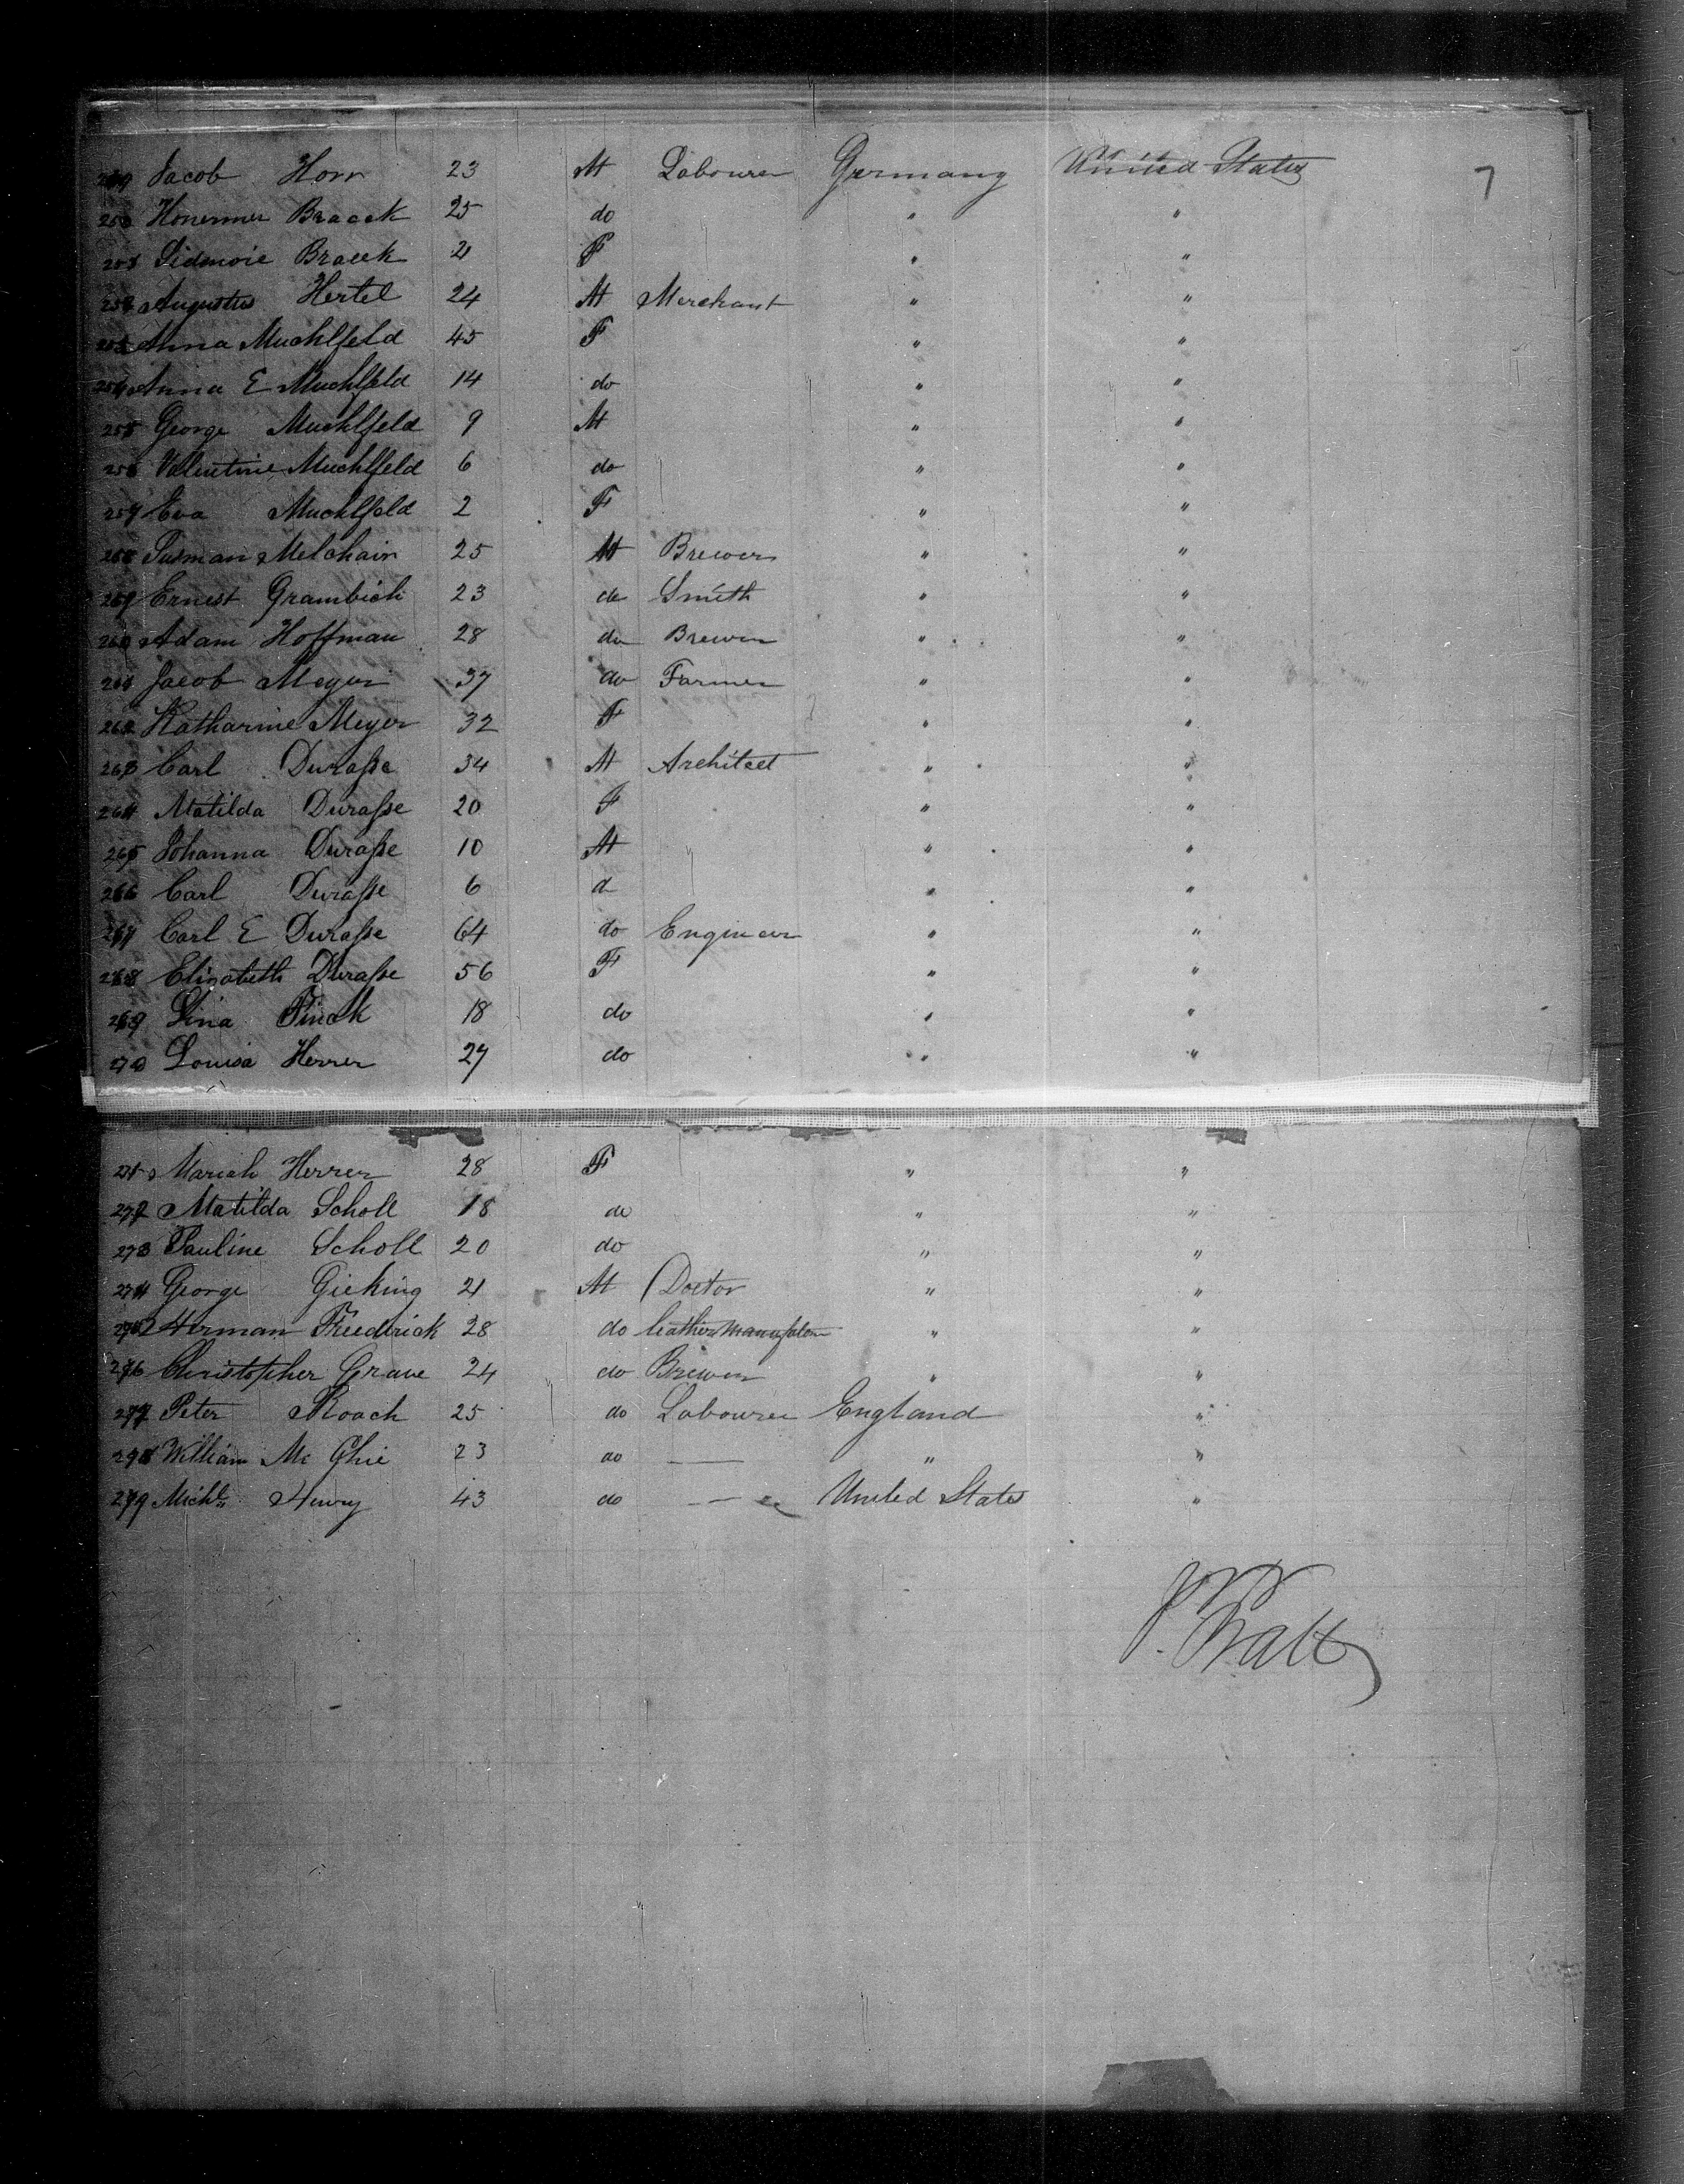 249 Jacob Horr 23 M Labourer Germany United States 7
250 Honermer Braeck 25 do " "
251 Sidmoie Braeek 21 F " "
252 Augustus Hertel 24 M Merchant " "
253 Anna Muehlfeld 45 F " "
254 Anna E Muehlfeld 14 do " "
255 George Muehlfeld 9 M " "
256 Valentine Muehlfeld 6 do " "
257 Eva Muehlfeld 2 F " "
258 Susman Melchair 25 M Brewer " "
259 Ernest Grambich 23 do Smith " "
260 Adam Hoffman 28 do Brewer " "
261 Jacob Meyer 37 do Farmer " "
262 Katharine Meyer 32 F " "
263 Carl Durasse 34 M Architect " "
264 Matilda Durasse 20 F " "
265 Johanna Durasse 10 M " "
266 Carl Durasse 6 d " "
267 Carl E Durasse 64 do Engineer " "
268 Elizabeth Durasse 56 F " "
269 Lina Finck 18 do " "
270 Louisa Herrer 27 do " "
271 Mariah Herrer 28 F " "
272 Matilda Scholl 18 do " "
273 Pauline Scholl 20 do " "
274 George Gieking 21 M Doctor " "
275 Herman Freederick 28 do leather " "
276 Christopher Grave 24 do Brewer " "
277 Peter Roach 25 do Labourer England "
278 William Mc Ghie 23 do — " "
279 Michl Henry 43 do — United States "
J. Pratt